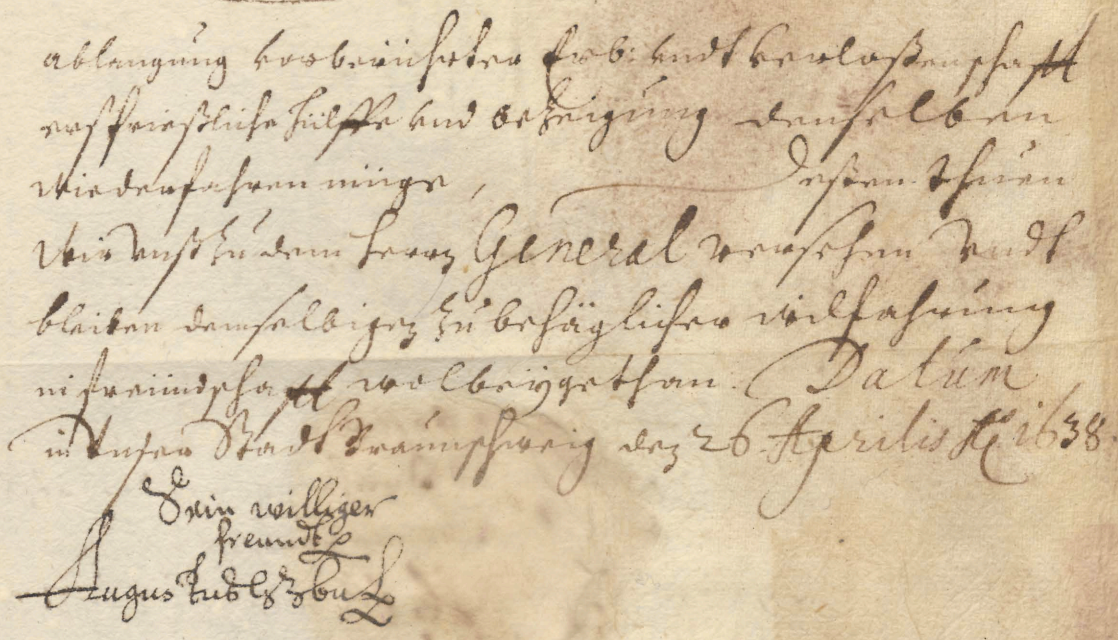 ablangung vorberührter Erb: undt verlaßenschafft
ersprießliche hülffe und bezeigung denselben
wiederfahren müge, Deßen thuen
Wir unß zu dem herrn General versehen Undt
bleiben demselbigen zu behäglicher wilfahrung
in freündschafft wolbeÿgethan. Datum
in Unser Stadt Braunschweig den 26 Aprilis Ao 1638
Sein williger
freundt
Augustus HzBuL